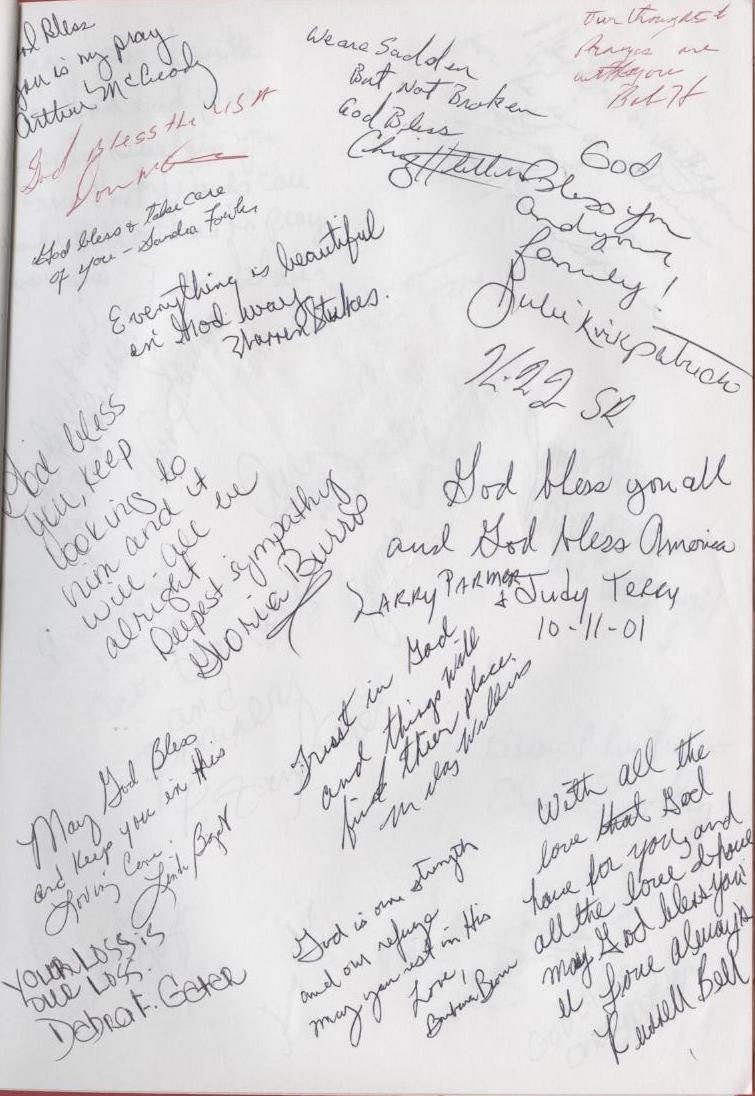 God Bless
you is my pray
Arthur McCready
God Bless the USA
Don
God bless & take care
of you - Sandra Fowler
Everything is beautiful
in God way
Warren Stukes.
We are Sadden
But Not Broken
God Bless
Our thoughts &
Prayers are
with you
Bob H
God
Bless you
and your
family!
Julie Kirkpatrick
K-22 SR
God bless
you, keep
looking to
him and it
will - all be
alright
Deepest sympathy
Gloria Burris
God bless you all
and God bless America
LARRY PARMER
& Judy Terry
10-11-01
Trust in God
and things will
find thier place.
Wilkins
May God Bless
and keep you in His
Loving Care.
YOUR LOSS IS
OUR LOSS.
Debra F. Geter
God is our strength
and our refuge
may you rest in His
Love,
Barbara Brown
With all the
love that God
have for you, and
all the love I have
may God bless you
Love always
Russell Bell